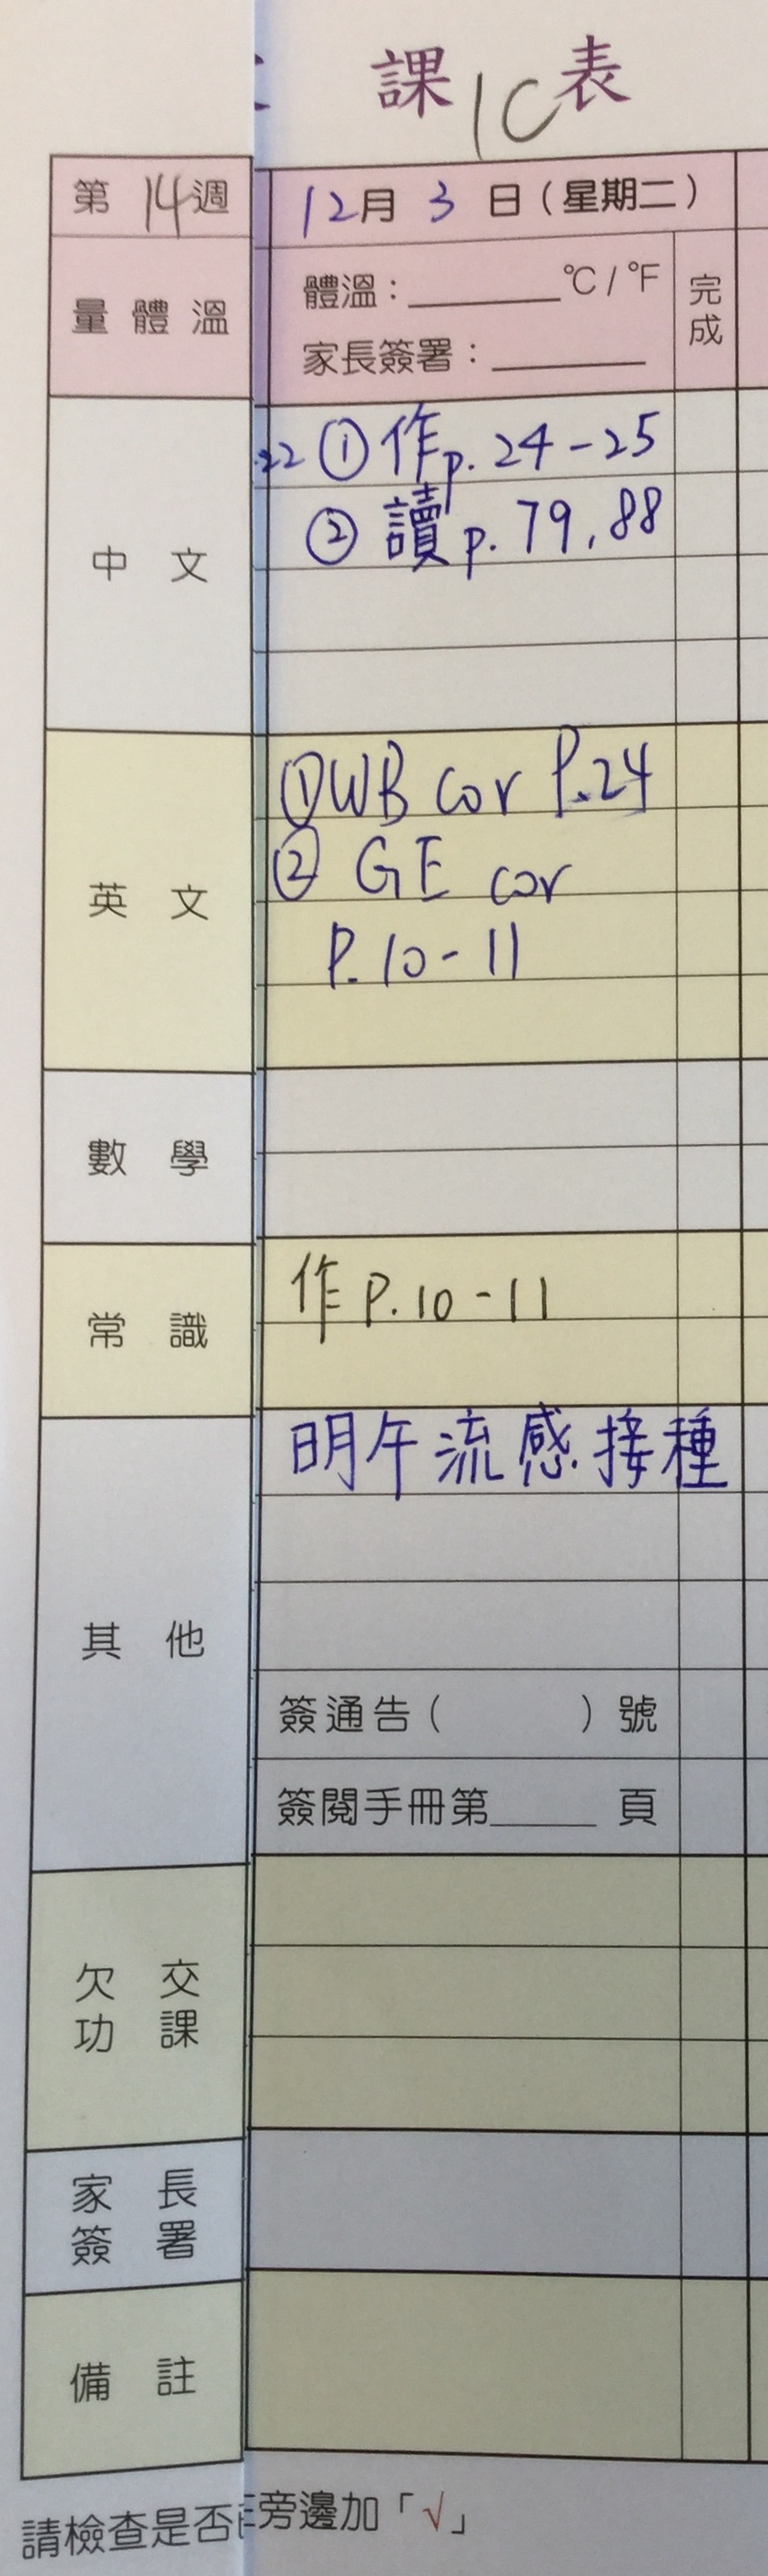 課 1C 表
第 14 週
12月 3 日（星期二）
量 體 溫
體溫：______°C / °F
家長簽署：______
完成
中 文
22 ① 作 p. 24-25
② 讀 p. 79, 88
英 文
① WB cor P.24
② GE cor
P. 10-11
數 學
常 識
作 P. 10-11
其 他
明午流感接種
簽通告（ ）號
簽閱手冊第_____ 頁
欠 交
功 課
家 長
簽 署
備 註
請檢查是否
旁邊加「√」